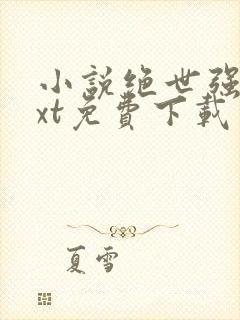 小說绝世强
xt免費下載
夏雪